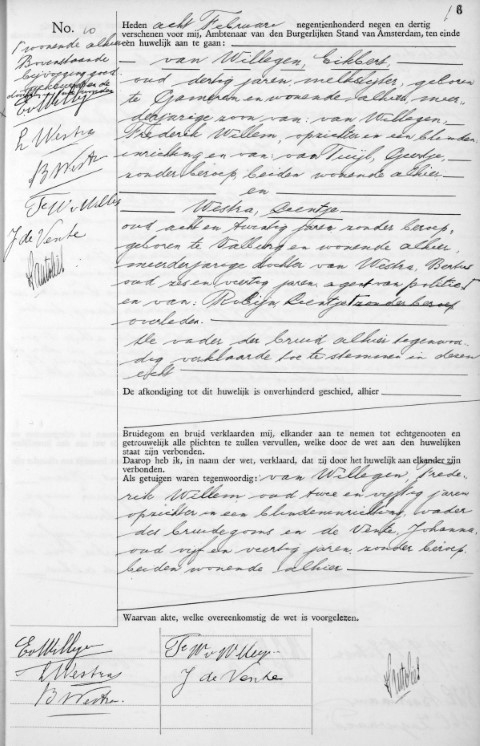 No. 10
Heden acht Februari negentienhonderd negen en dertig
verschenen voor mij, Ambtenaar van den Burgerlijken Stand van Amsterdam, ten einde
een huwelijk aan te gaan:
van Willegen, Eikbert,
oud dertig jaren, melkslijter, geboren
te Gameren en wonende alhier, meer-
derjarige zoon van: van Willegen,
Frederik Willem, opzichter in een blinden
inrichting en van: van Tuijl, Geertje,
zonder beroep, beiden wonende alhier
en
Westra, Leentje
oud acht en twintig jaren, zonder beroep,
geboren te en wonende alhier,
meerderjarige dochter van Westra, Bertus
oud zes en veertig jaren, agent van politie
en van: Robijn, Leentje, zonder beroep
overleden.
De vader der bruid alhier tegenwoor-
dig verklaarde toe te stemmen in dezen
echt
De afkondiging tot dit huwelijk is onverhinderd geschied, alhier
Bruidegom en bruid verklaarden mij, elkander aan te nemen tot echtgenooten en
getrouwelijk alle plichten te zullen vervullen, welke door de wet aan den huwelijken
staat zijn verbonden.
Daarop heb ik, in naam der wet, verklaard, dat zij door het huwelijk aan elkander zijn
verbonden.
Als getuigen waren tegenwoordig: van Willegen, Frede-
rik Willem oud twee en vijftig jaren
opzichter in een blindeninrichting, vader
des bruidegoms en de Vente, Johanna
oud vijf en veertig jaren, zonder beroep
beiden wonende alhier
Waarvan akte, welke overeenkomstig de wet is voorgelezen.
1 wonende alhier
Bovenstaande
bijvoeging goed
L Westra
B Westra
J de Vente
L Westra
B Westra
J de Vente
6